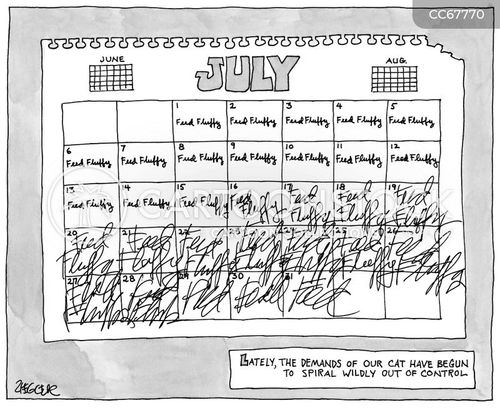 CC67770
JUNE JULY AUG.
1 2 3 4 5
Feed Fluffy Feed Fluffy Feed Fluffy Feed Fluffy Feed Fluffy
6 7 8 9 10 11 12
Feed Fluffy Feed Fluffy Feed Fluffy Feed Fluffy Feed Fluffy Feed Fluffy Feed Fluffy
13 14 15 16 17 18 19
Feed Fluffy Feed Fluffy Feed Fluffy Feed Fluffy Feed Fluffy Feed Fluffy Feed Fluffy
20 21 22 23 24 25 26
Feed Feed Feed Feed Feed Feed Feed
Fluffy Fluffy Fluffy Fluffy Fluffy Fluffy Fluffy
27 28 29 30 31
Feed Feed Feed
LATELY, THE DEMANDS OF OUR CAT HAVE BEGUN
TO SPIRAL WILDLY OUT OF CONTROL
ZIEGLER